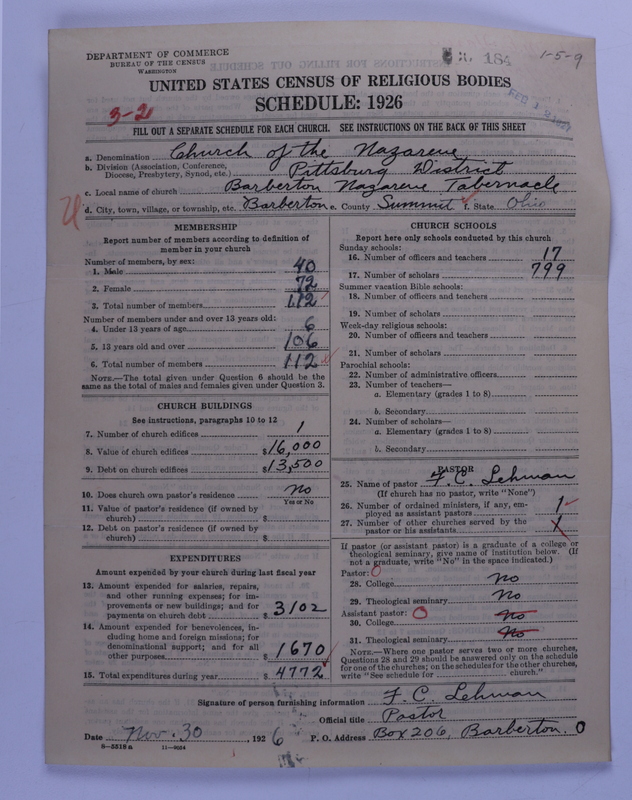 DEPARTMENT OF COMMERCE
BUREAU OF THE CENSUS
WASHINGTON
184
1-5-9
UNITED STATES CENSUS OF RELIGIOUS BODIES
SCHEDULE: 1926
3-2
FEB 1 2 1927
FILL OUT A SEPARATE SCHEDULE FOR EACH CHURCH. SEE INSTRUCTIONS ON THE BACK OF THIS SHEET
a. Denomination Church of the Nazarene
b. Division (Association, Conference, Diocese, Presbytery, Synod, etc.) Pittsburg District
c. Local name of church Barberton Nazarene Tabernacle
d. City, town, village, or township, etc. Barberton e. County Summit f. State Ohio
MEMBERSHIP
Report number of members according to definition of
member in your church
Number of members, by sex:
1. Male 40
2. Female 72
3. Total number of members 112
Number of members under and over 13 years old:
4. Under 13 years of age 6
5. 13 years old and over 106
6. Total number of members 112
NOTE.—The total given under Question 6 should be the
same as the total of males and females given under Question 3.
CHURCH BUILDINGS
See instructions, paragraphs 10 to 12
7. Number of church edifices 1
8. Value of church edifices $16,000
9. Debt on church edifices $13,500
10. Does church own pastor's residence no
Yes or No
11. Value of pastor's residence (if owned by
church) $
12. Debt on pastor's residence (if owned by
church) $
EXPENDITURES
Amount expended by your church during last fiscal year
13. Amount expended for salaries, repairs,
and other running expenses; for im-
provements or new buildings; and for
payments on church debt $ 3102
14. Amount expended for benevolences, in-
cluding home and foreign missions; for
denominational support; and for all
other purposes $ 1670
15. Total expenditures during year $ 4772
CHURCH SCHOOLS
Report here only schools conducted by this church
Sunday schools:
16. Number of officers and teachers 17
17. Number of scholars 799
Summer vacation Bible schools:
18. Number of officers and teachers
19. Number of scholars
Week-day religious schools:
20. Number of officers and teachers
21. Number of scholars
Parochial schools:
22. Number of administrative officers
23. Number of teachers—
a. Elementary (grades 1 to 8)
b. Secondary
24. Number of scholars—
a. Elementary (grades 1 to 8)
b. Secondary
PASTOR
25. Name of pastor F. C. Lehman
(If church has no pastor, write "None")
26. Number of ordained ministers, if any, em-
ployed as assistant pastors 1
27. Number of other churches served by the
pastor or his assistants
If pastor (or assistant pastor) is a graduate of a college or
theological seminary, give name of institution below. (If
not a graduate, write "No" in the space indicated.)
Pastor: 0
28. College no
29. Theological seminary No
Assistant pastor: 0
30. College no
31. Theological seminary no
NOTE.—Where one pastor serves two or more churches,
Questions 28 and 29 should be answered only on the schedule
for one of the churches; on the schedules for the other churches,
write "See schedule for church."
Signature of person furnishing information F. C. Lehman
Official title Pastor
Date Nov. 30, 1926 P. O. Address Box 206, Barberton. O
8—5518 a 11—9024